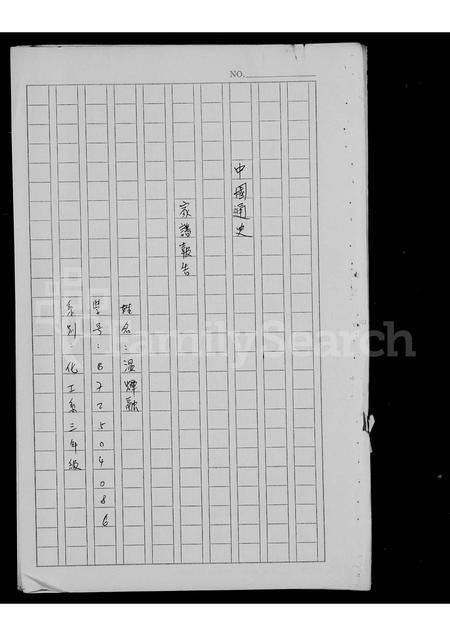 NO.
中國通史
家譜報告
姓名：溫
學号：B72504086
系别：化工系三年級
FamilySearch